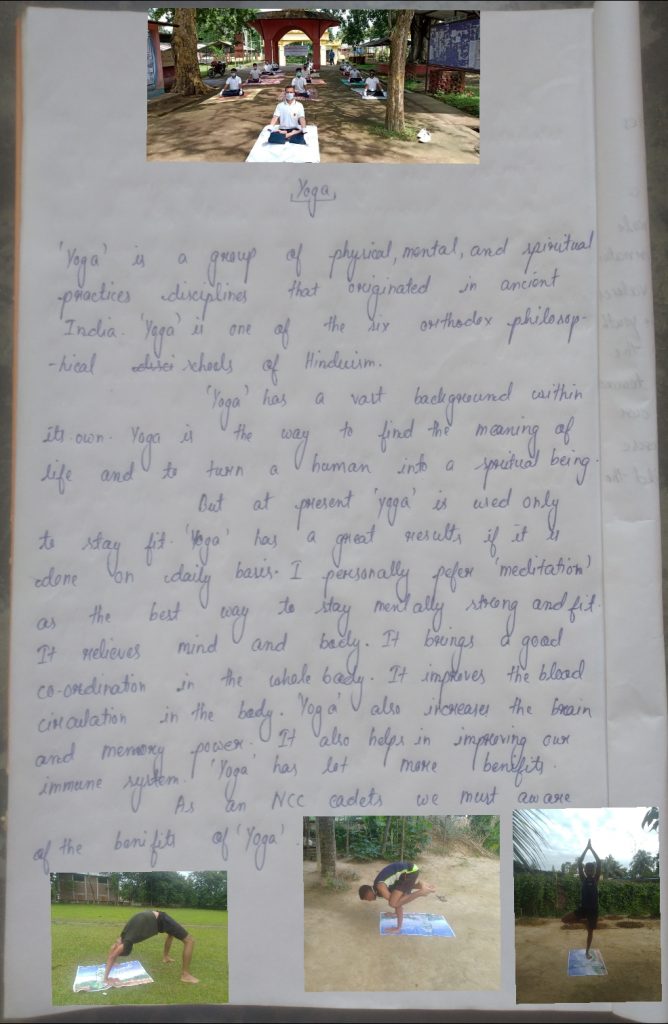 Yoga
'Yoga' is a group of physical, mental, and spiritual
practices disciplines that originated in ancient
India. 'Yoga' is one of the six orthodox philosop-
-hical disci schools of Hinduism.
'Yoga' has a vast background within
its own. Yoga is the way to find the meaning of
life and to turn a human into a spritual being.
But at present 'yoga' is used only
to stay fit. 'Yoga' has a great results if it is
done on daily basis. I personally pefer 'meditation'
as the best way to stay mentally strong and fit.
It relieves mind and body. It brings a good
co-ordination in the whole body. It improves the blood
circulation in the body. 'Yoga' also increases the brain
and memory power. It also helps in improving our
immune system. 'Yoga' has lot more benefits.
As an NCC cadets we must aware
of the benifits of 'Yoga'.